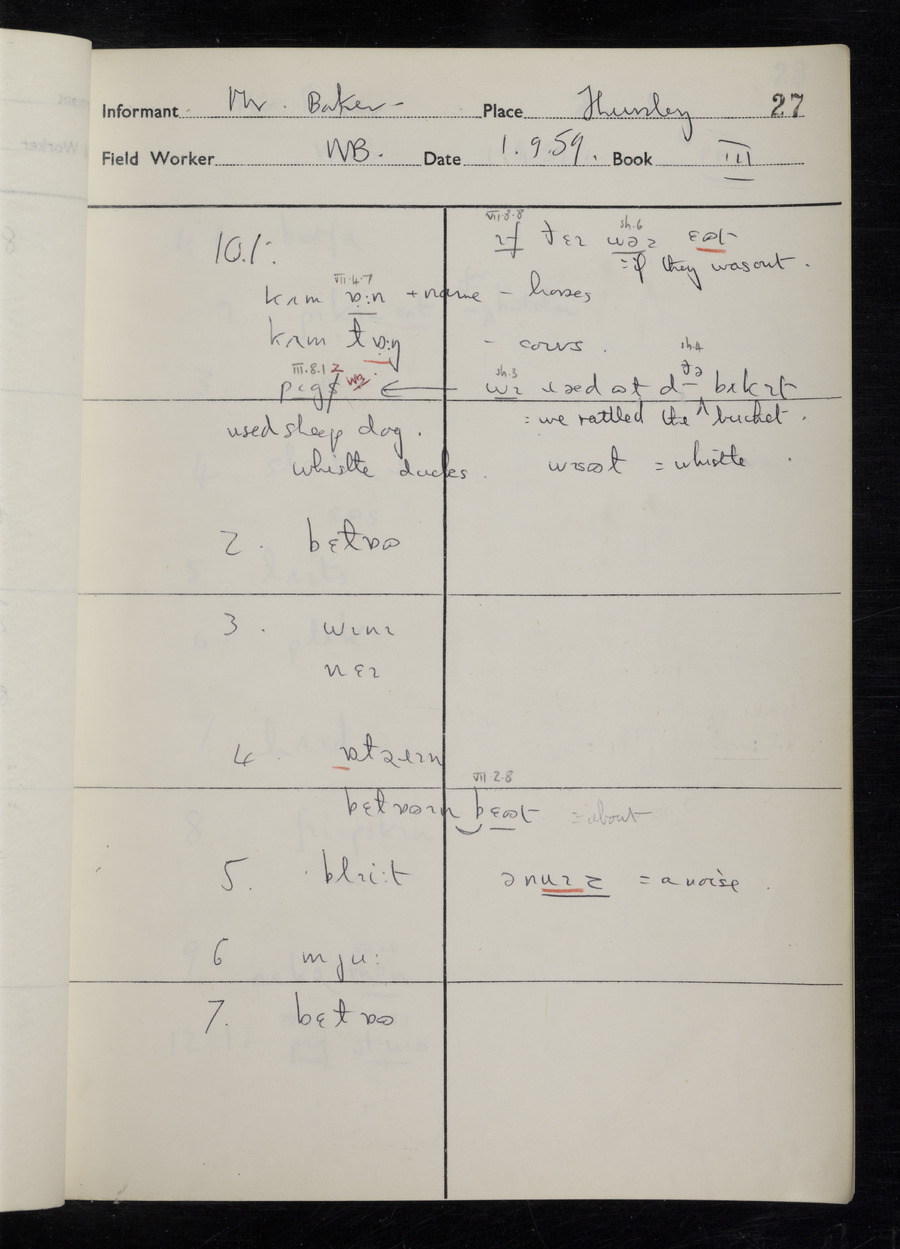 Informant Mr. Baker Place Thursley 27
Field Worker WB. Date 1.9.59. Book III
10.1.
VII.8.8 sh.6
ɪf ðɛɪ wəz ɛʊt
= if they was out.
VII.4.7
kʌm ɒ:n + name - horses
kʌm ɫɒ:ŋ - cows.
III.8.1 sh.3 sh.4
pɪgs WB ← wɪ bʌkɪt
= we rattled the bucket.
used sheep dog.
whistle ducks. wɪsʊɫ = whistle.
2. bɛɫɒʊ
3. wɪnɪ
nɛɪ
4
VII.2.8
bɛɫɒʊɪn bɛʊt = about
5. bli:t ənɪuɪz = a noise.
6 mju:
7. bɛɫɒʊ